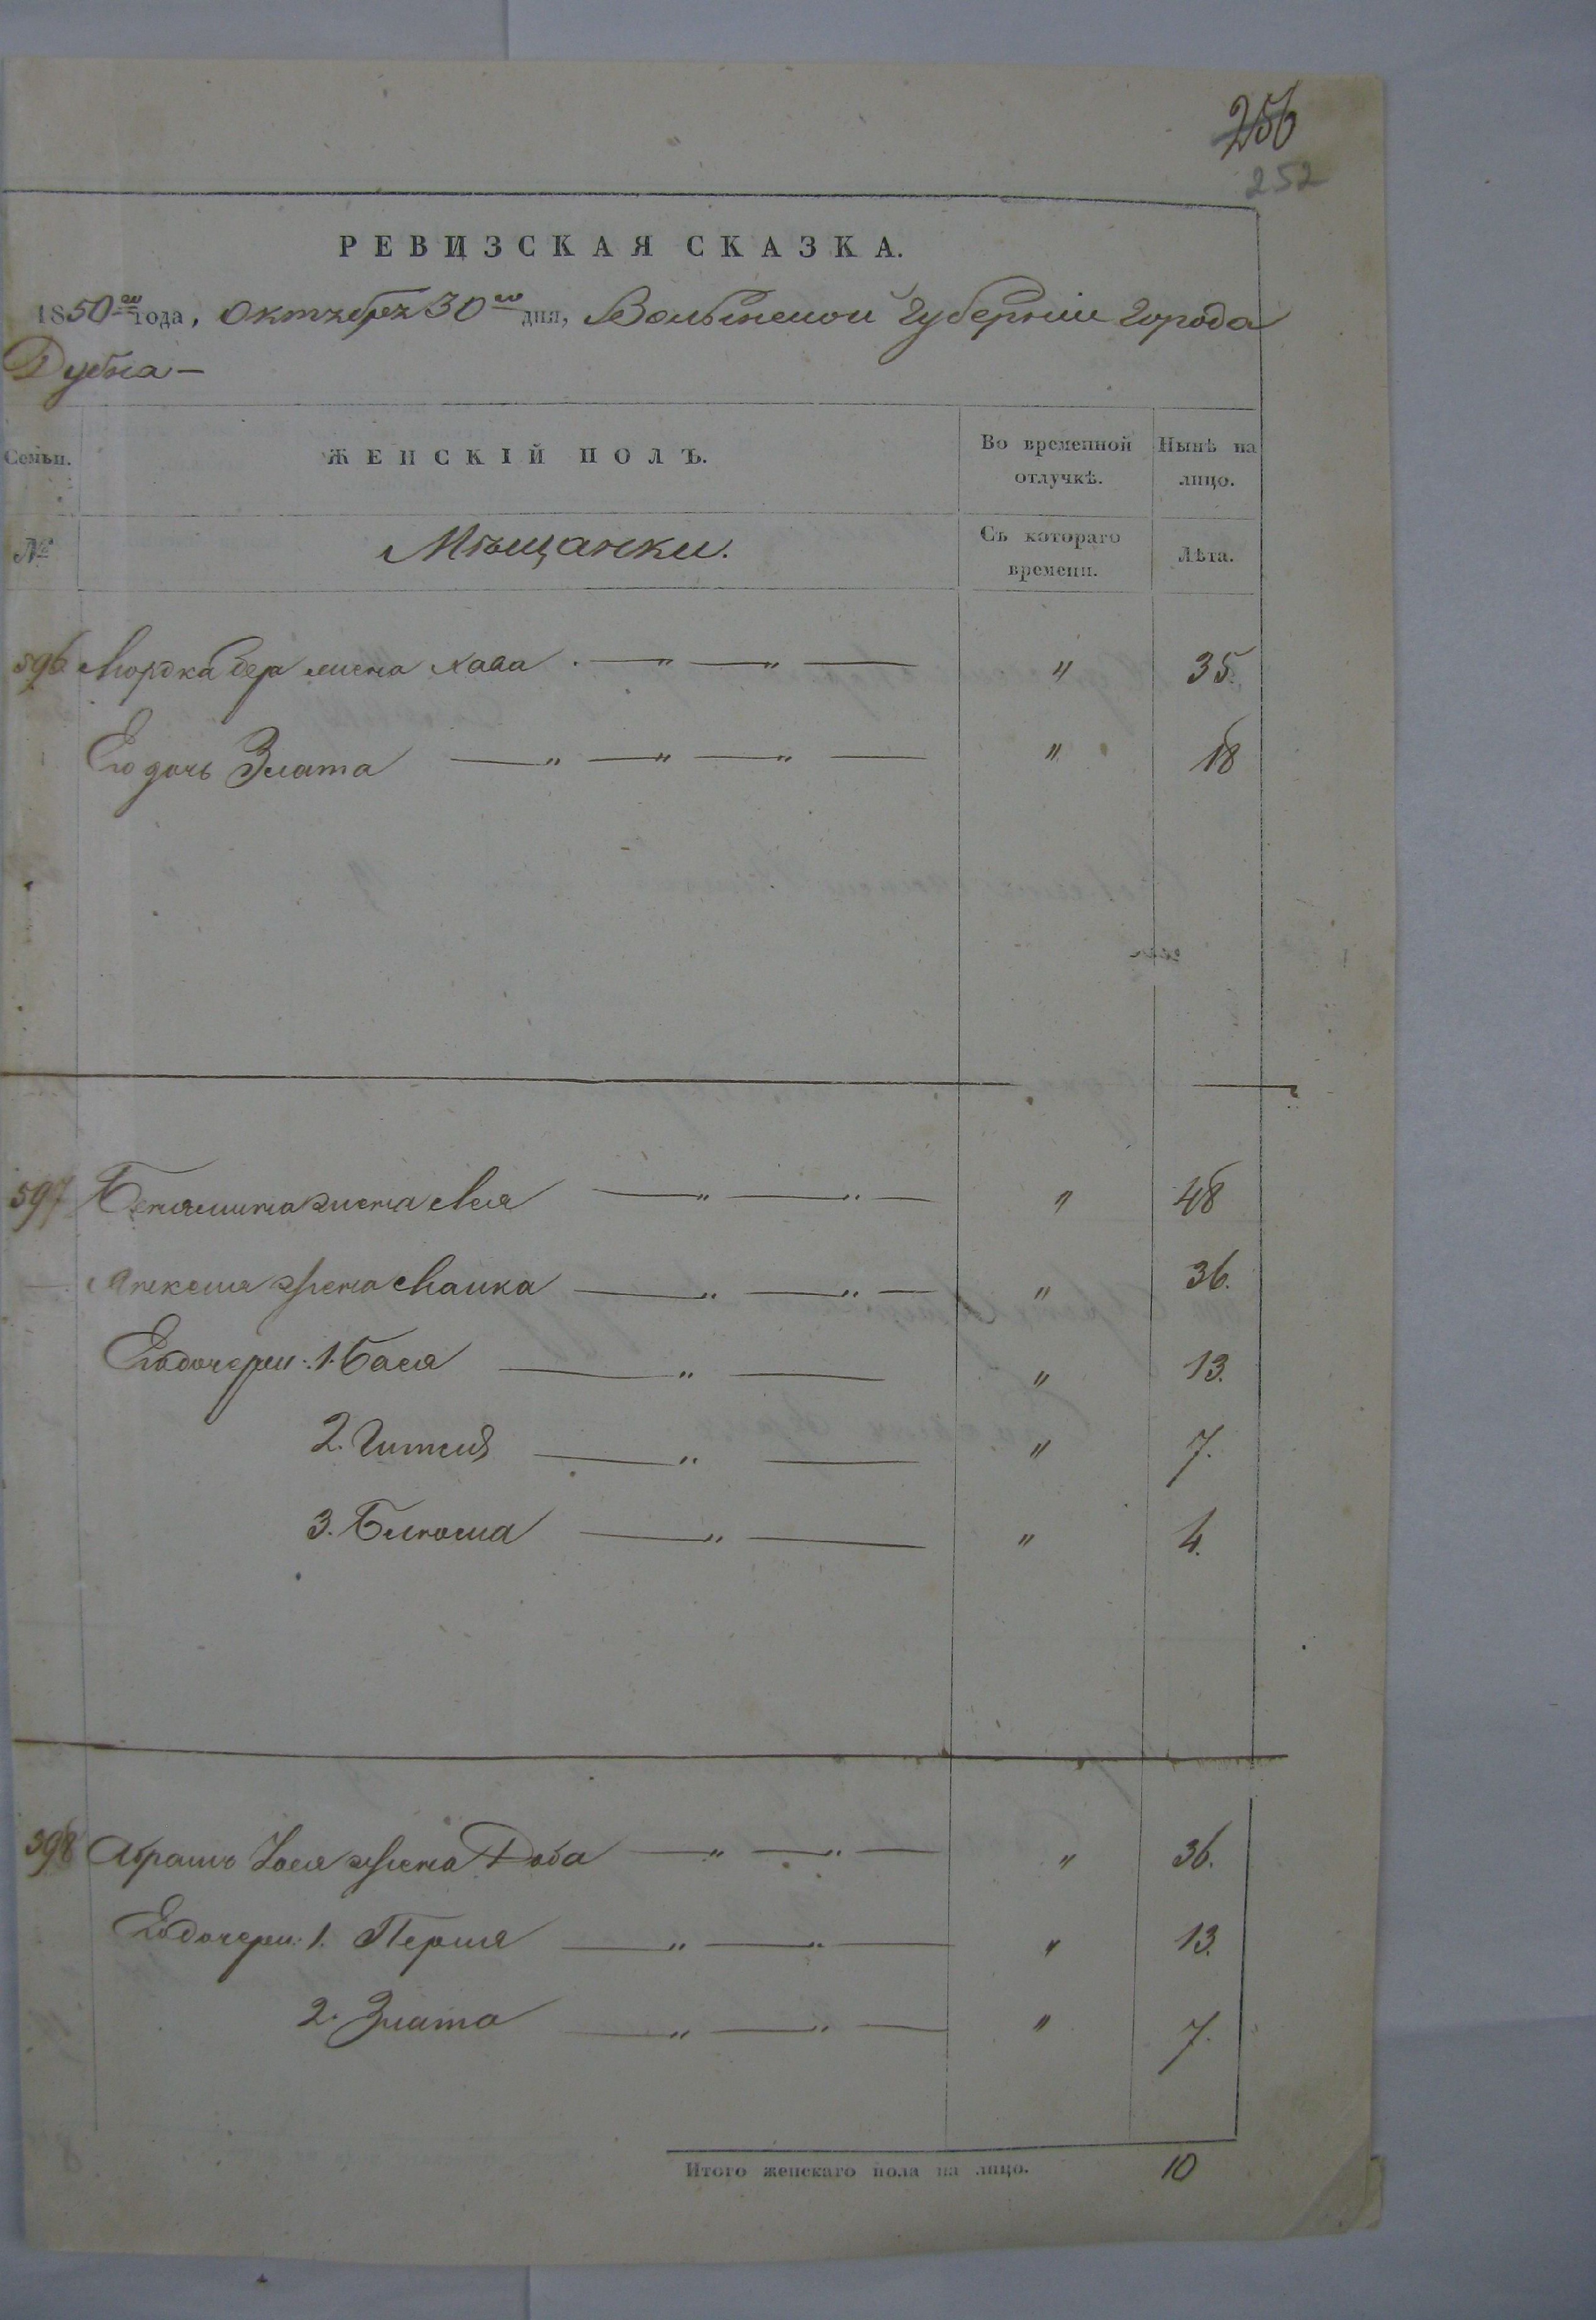 256
252
РЕВИЗСКАЯ СКАЗКА.
1850го года, октября 30го дня, Волынской Губерніи Города
Дубна —
Семьи. ЖЕНСКІЙ ПОЛЪ. Во временной отлучкѣ. Нынѣ на лицо.
№ Мѣщанки. Съ котораго времени. Лѣта.
596 Мордка Бера жена Хава . — „ — „ — „ 35.
Его дочь Злата — „ — „ — „ — „ 18
597 Бенямина жена Лея — „ — „ — „ 48
Янкеля жена Малка — „ — „ — „ 36.
Его дочери: 1. Бася — „ — „ 13.
2. Гитля — „ — „ 7.
3. — „ — „ 4.
598 Абрамъ Іося жена Доба — „ — „ — „ 36.
Его дочери: 1. Перля — „ — „ — „ 13.
2. Злата — „ — „ — „ 7.
Итого женскаго пола на лицо. 10